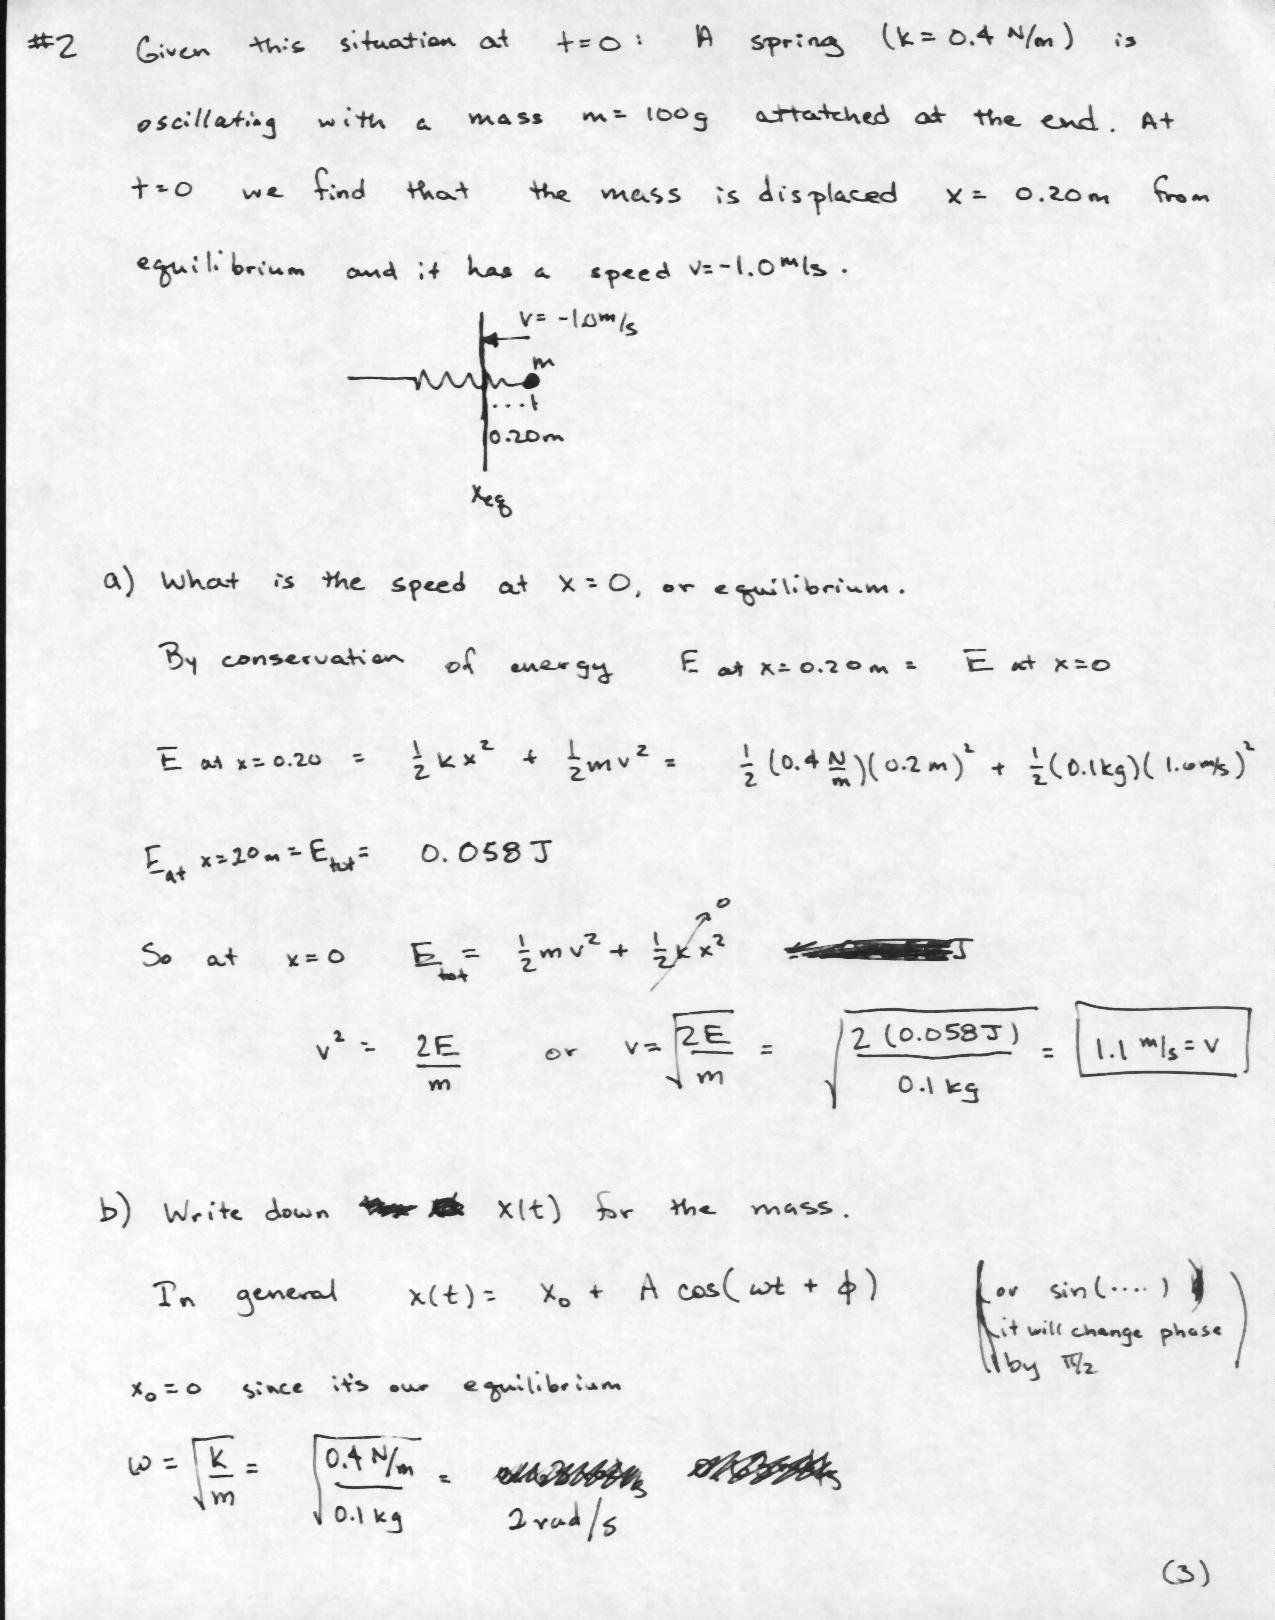 #2 Given this situation at t=0: A spring (k= 0.4 N/m) is
oscillating with a mass m= 100g attatched at the end. At
t=0 we find that the mass is displaced x= 0.20m from
equilibrium and it has a speed v=-1.0m/s.
v= -1.0m/s
m
0.20m
xeq
a) What is the speed at x=0, or equilibrium.
By conservation of energy E at x=0.20m = E at x=0
E at x=0.20 = ½kx² + ½mv² = ½(0.4 N/m)(0.2m)² + ½(0.1kg)(1.0m/s)²
E at x=20m = E tot = 0.058J
So at x=0 E tot = ½mv² + ½kx² 0
J
v² = 2E/m or v= √(2E/m) = √(2(0.058J)/0.1kg) = 1.1 m/s = v
b) Write down x(t) for the mass.
In general x(t)= x₀ + A cos(ωt + φ) (or sin(....)
it will change phase
by π/2)
x₀=0 since it's our equilibrium
ω = √(k/m) = √(0.4 N/m/0.1kg) = 2 rad/s
(3)